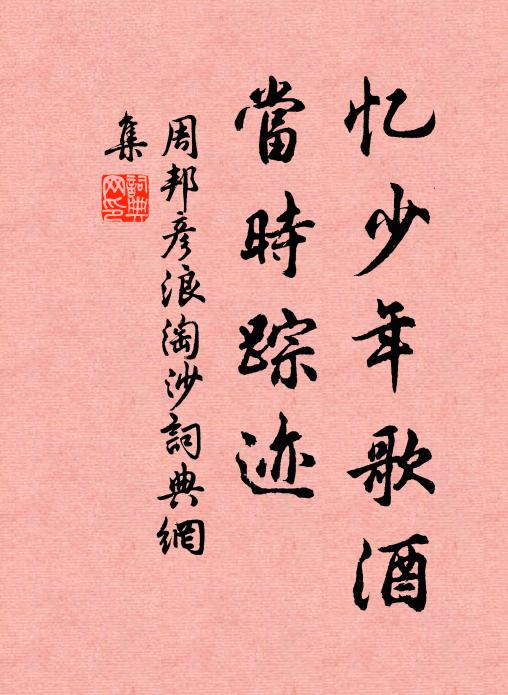 忆少年歌酒
當時踪迹
周邦彦浪淘沙詞典網
集
詞典网印